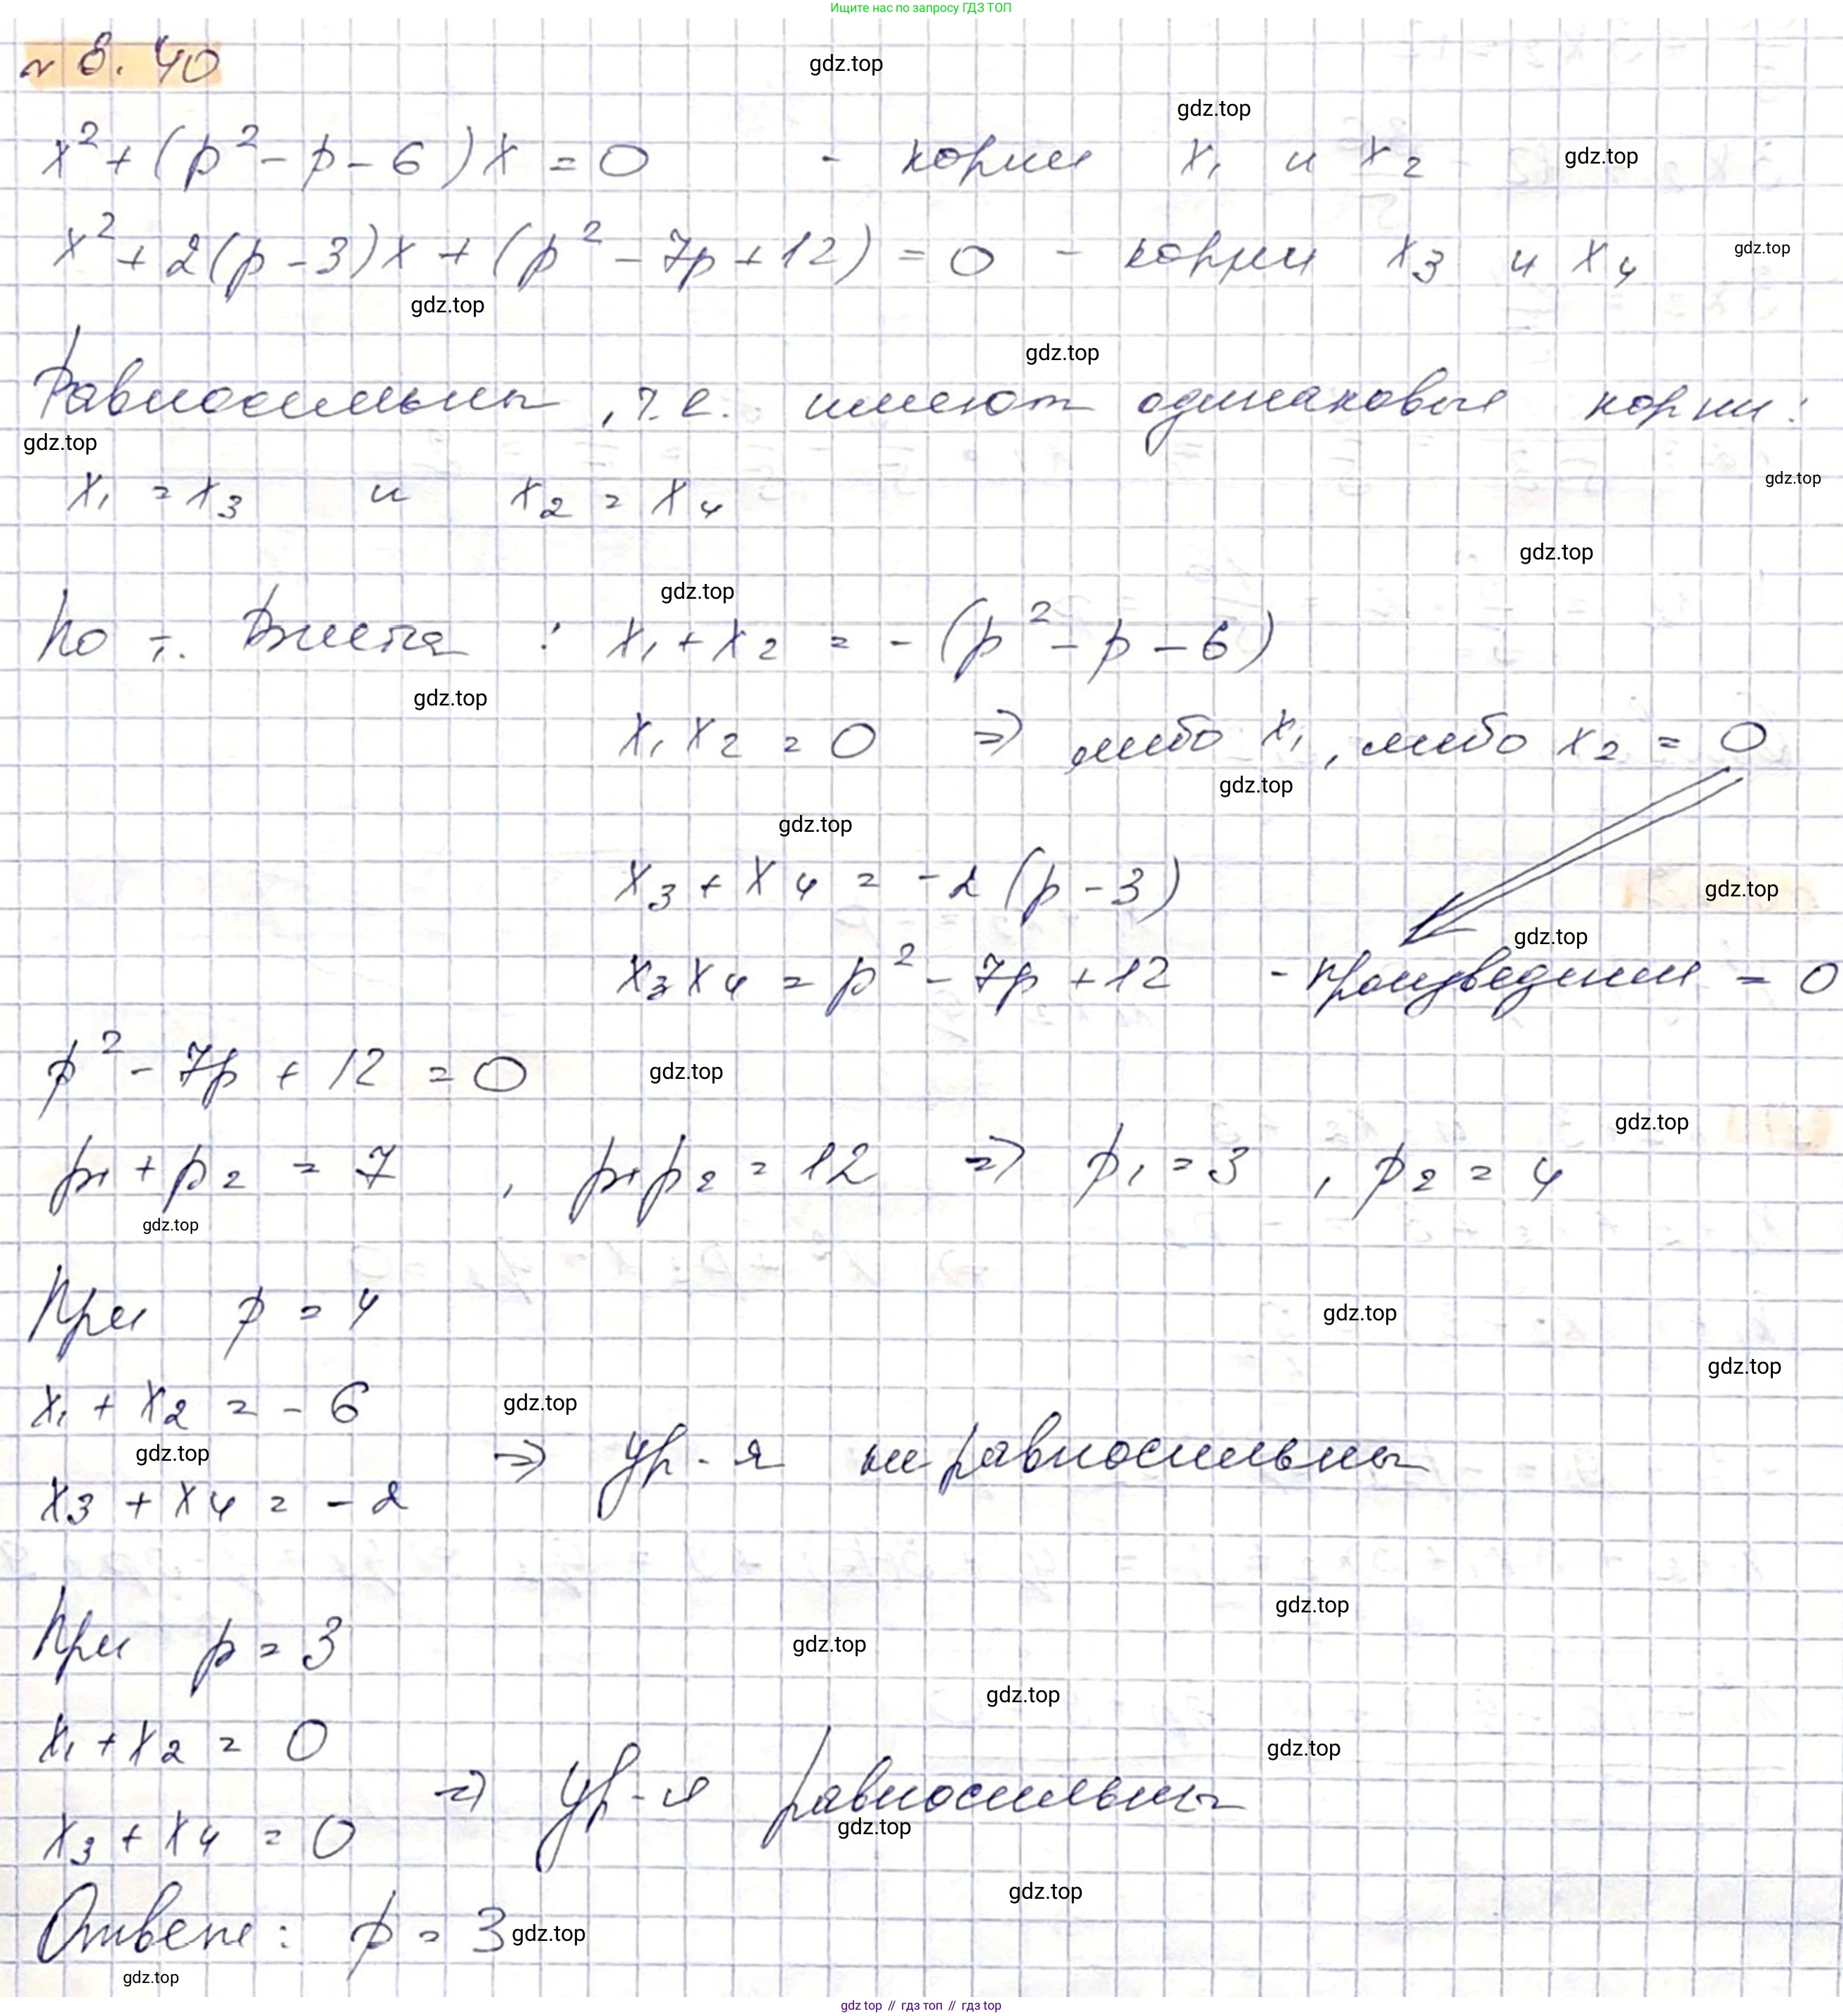 Ищите нас по запросу ГДЗ ТОП
№ 8. 40
gdz.top
gdz.top
x² + (p² - p - 6)x = 0 - корни x₁ и x₂
gdz.top
x² + 2(p - 3)x + (p² - 7p + 12) = 0 - корни x₃ и x₄
gdz.top
gdz.top
gdz.top
Равносильны, т.е. имеют одинаковые корни:
gdz.top
gdz.top
x₁ = x₃ и x₂ = x₄
gdz.top
gdz.top
По т. Виета : x₁ + x₂ = - (p² - p - 6)
gdz.top
x₁ x₂ = 0 ⇒ либо x₁, либо x₂ = 0
gdz.top
gdz.top
x₃ + x₄ = -2 (p - 3)
gdz.top
gdz.top
x₃ x₄ = p² - 7p + 12 - произведении = 0
p² - 7p + 12 = 0
gdz.top
gdz.top
p₁ + p₂ = 7 , p₁p₂ = 12 ⇒ p₁ = 3 , p₂ = 4
gdz.top
При p = 4
gdz.top
gdz.top
x₁ + x₂ = - 6
gdz.top
gdz.top
⇒ ур-я не равносильны
x₃ + x₄ = - 2
gdz.top
При p = 3
gdz.top
gdz.top
x₁ + x₂ = 0
gdz.top
⇒ ур-я равносильны
gdz.top
x₃ + x₄ = 0
gdz.top
Ответ: p = 3
gdz.top
gdz.top
gdz top // гдз топ // гдз top